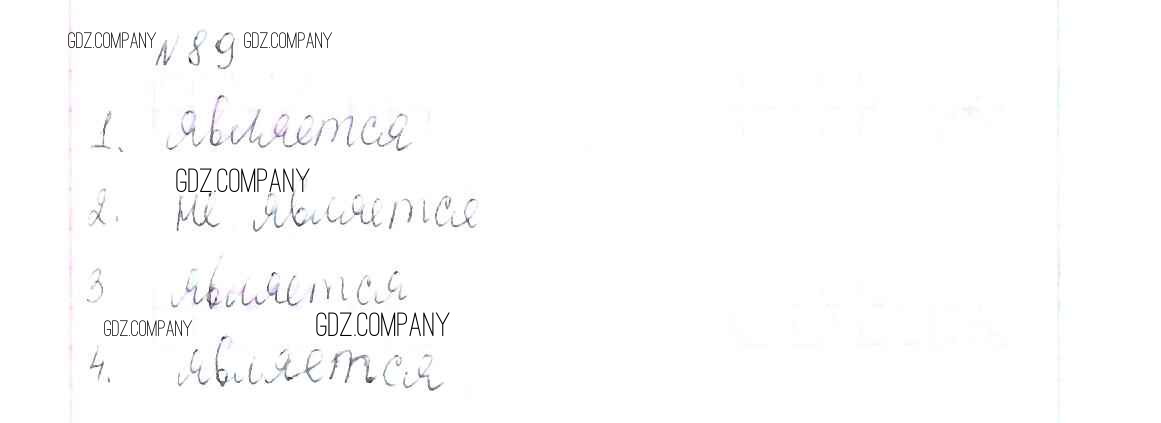 GDZ.COMPANY N 89 GDZ.COMPANY
1. является
GDZ.COMPANY
2. не является
3 является
GDZ.COMPANY GDZ.COMPANY
4. является